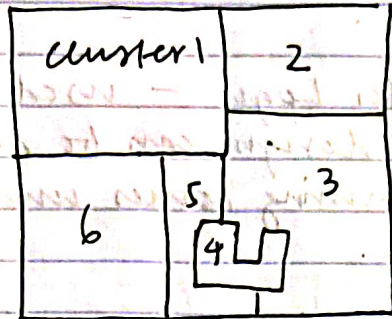 cluster 1 2
3
5
6 4